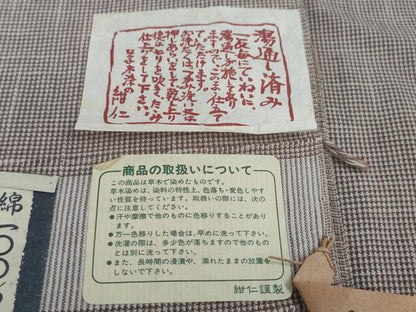 湯通し済み
一反一反にていねいに
湯通しが施してあり
ますのでこのまゝ仕立て
ていただけます。
お洗たくは、つまみ洗い又は
押しあらいをして乾上り
に霧を吹き、たたみ
仕上げをして下さい。
紺仁
商品の取扱いについて
この商品は草木で染めたものです。
草木染めは、染料の特性上、色落ち・変色しやす
い性質を持っています。取扱いの際には、次の
点に注意してください。
●汗や摩擦で他のものに色移りすることがあり
ます。
●万一色移りした場合は、早めに洗って下さい。
●洗濯の際は、多少色が落ちますので他のもの
とは別に洗って下さい。
●また、長時間の浸漬や、濡れたままの放置を
しないで下さい。
紺仁謹製
綿
一〇〇